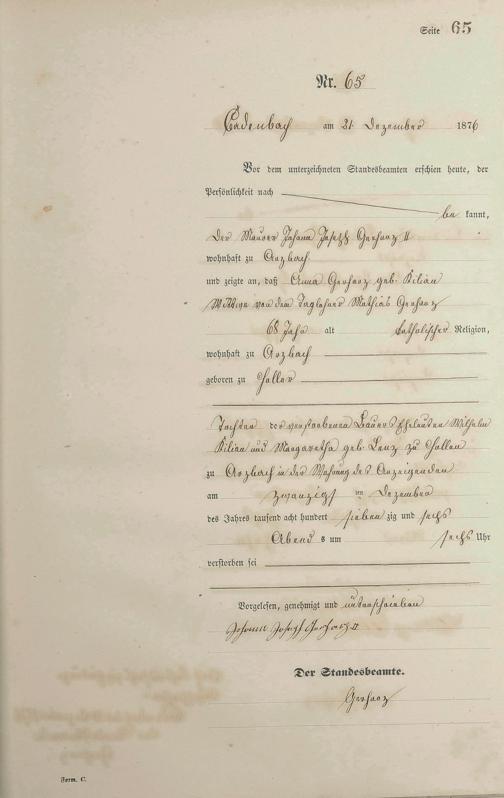 Seite 65
Nr. 65
Cadenbach am 21 Dezember 1876
Vor dem unterzeichneten Standesbeamten erschien heute, der
Persönlichkeit nach
be kannt,
der Maurer Johann Joseph Gerharz II
wohnhaft zu Arzbach
und zeigte an, daß Anna Gerharz geb. Kilian
Wittwe von dem Taglöhner Mathias Gerharz
68 Jahr alt katholischer Religion,
wohnhaft zu Arzbach
geboren zu Holler
Tochter der verstorbenen Bauers Eheleuten Wilhelm
Kilian und Margaretha geb. Lenz zu Holler
zu Arzbach in der Wohnung des Anzeigenden
am zwanzigs ten Dezember
des Jahres tausend acht hundert sieben zig und sechs
Abend s um sechs Uhr
verstorben sei
Vorgelesen, genehmigt und unterschrieben
Johann Joseph Gerharz II
Der Standesbeamte.
Gerharz
Form. C.